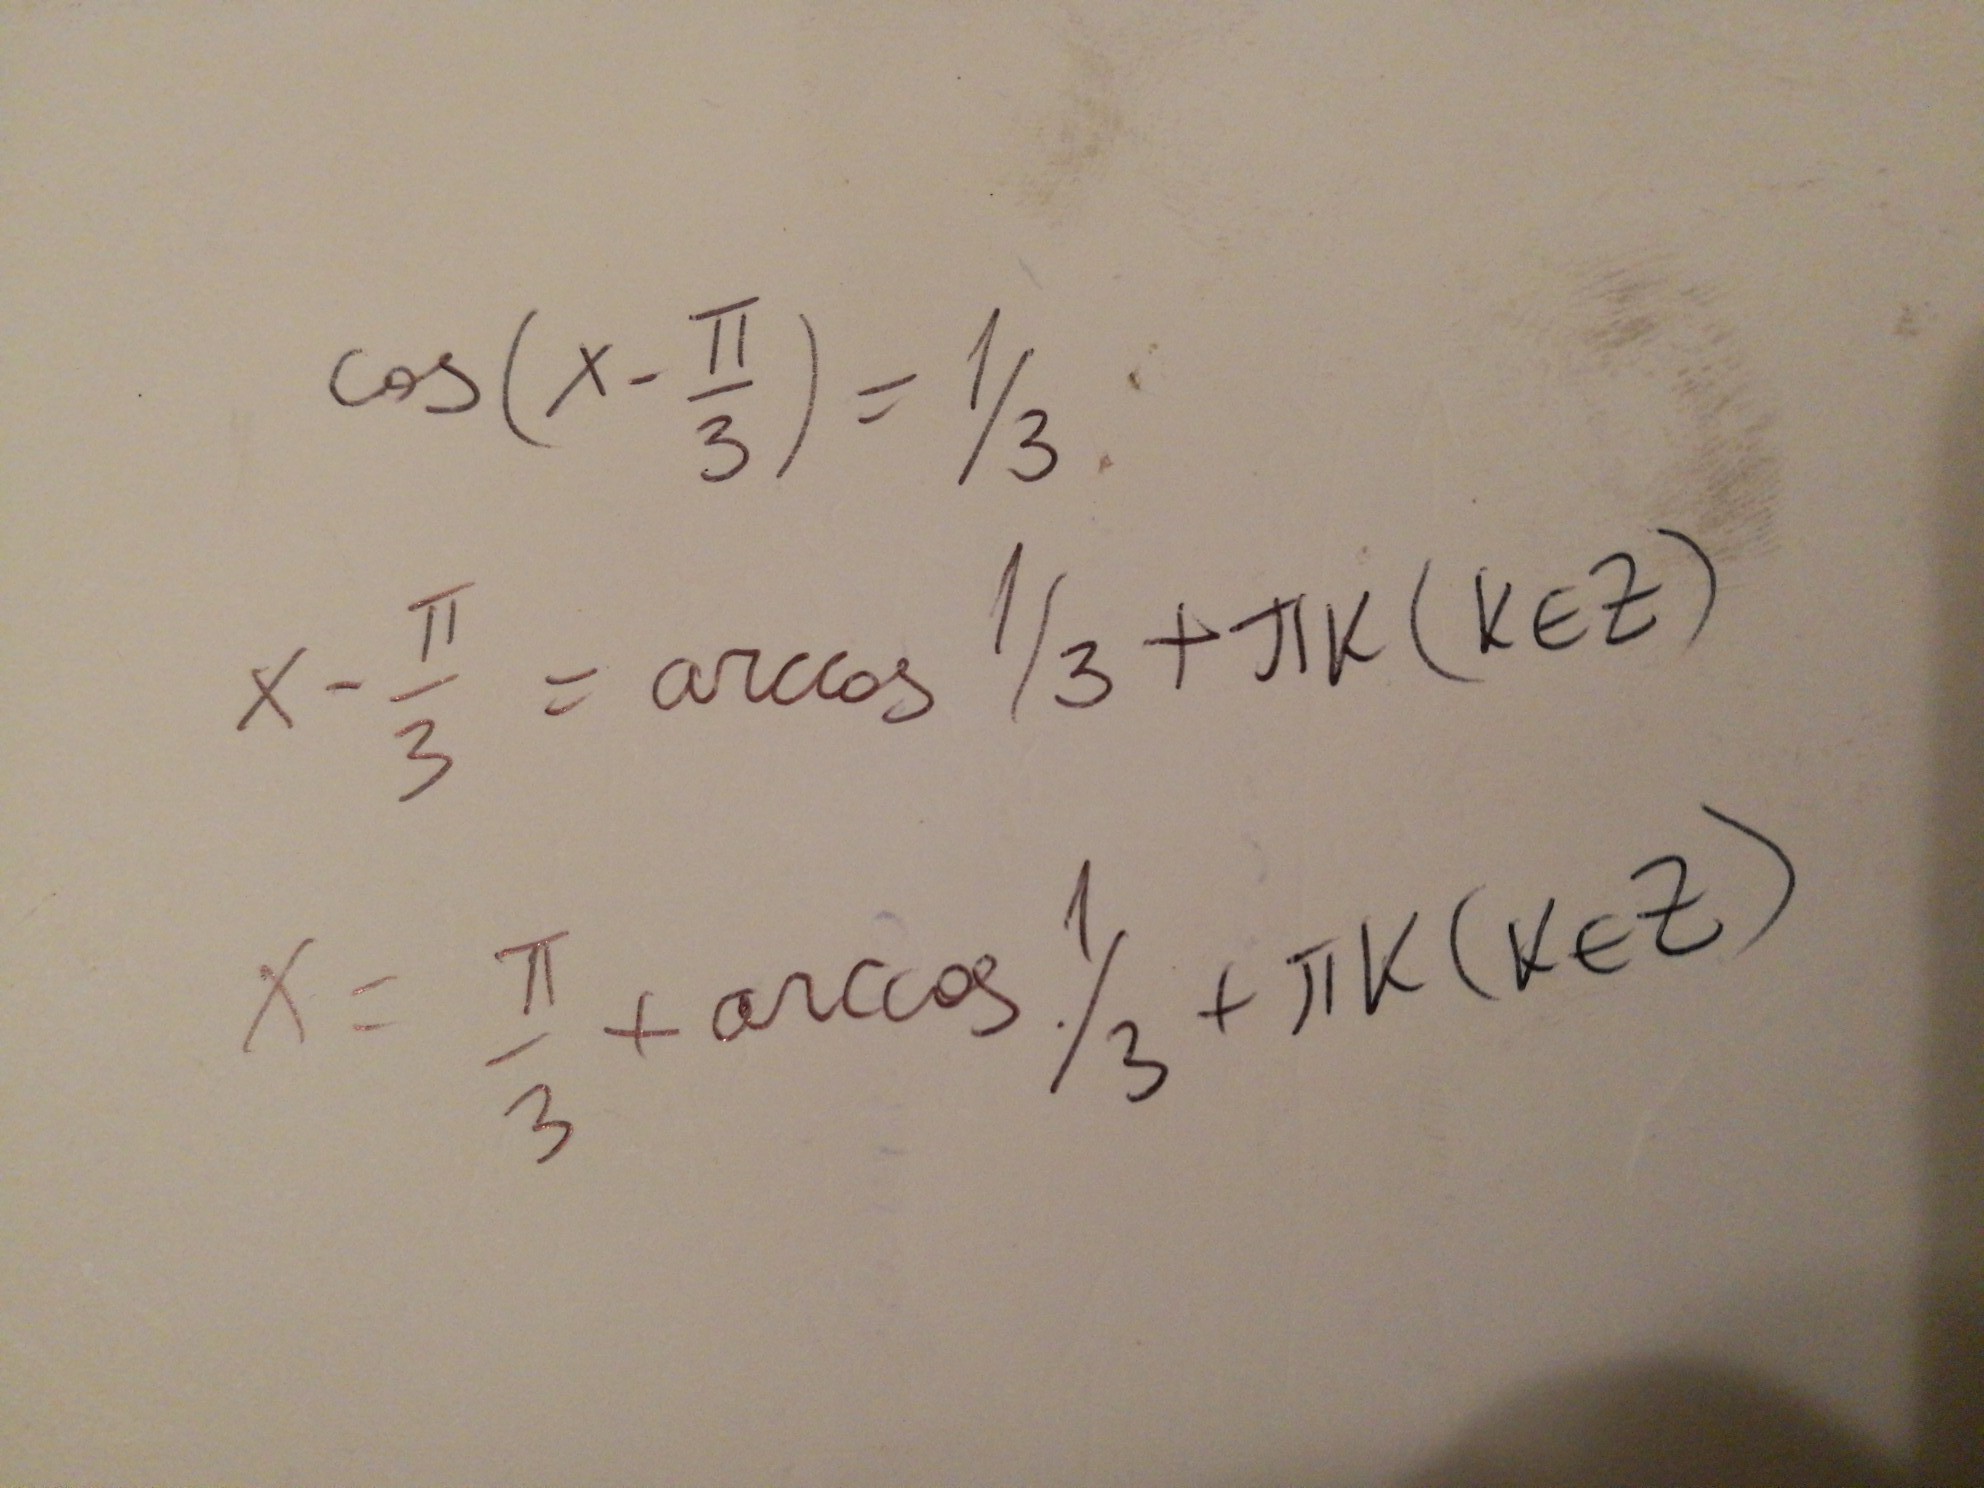 cos(x - π/3) = 1/3
x - π/3 = arccos 1/3 + πk (k∈Z)
x = π/3 + arccos 1/3 + πk (k∈Z)